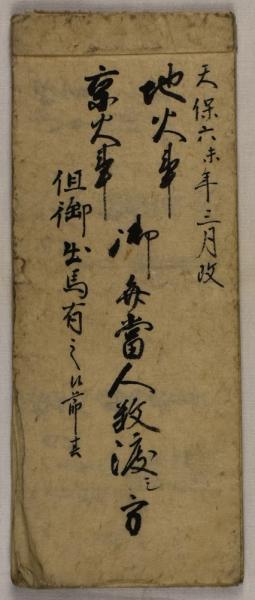 天保六未年三月改
地火事
京火事
御弁當人数渡之方
但御出馬有之候節共